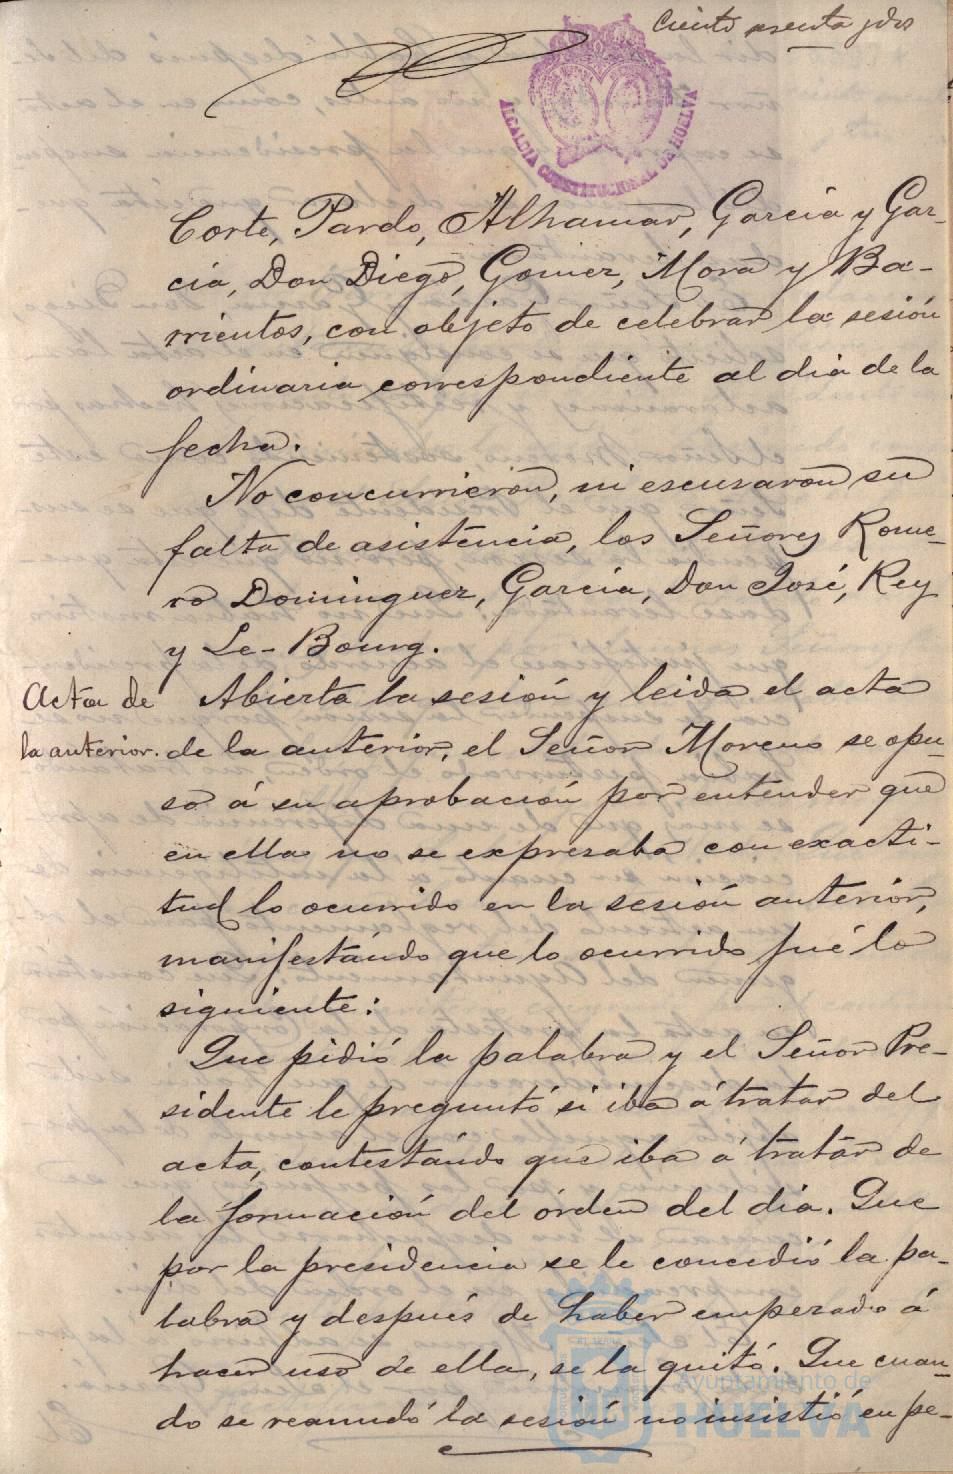 Ciento sesenta y dos
ALCALDIA CONSTITUCIONAL DE HUELVA
Corte, Pardo, Alhamar, Garcia y Gar-
cia, Don Diego, Gomez, Mora y Ba-
rrientos, con objeto de celebrar la sesión
ordinaria correspondiente al dia de la
fecha.
No concurrieron, ni escusaron su
falta de asistencia, los Señores Rome-
ro Dominguez, Garcia, Don José, Rey
y Le-Bourg.
Acta de
la anterior.
Abierta la sesión y leida el acta
de la anterior, el Señor Moreno se opu-
so á su aprobación por entender que
en ella no se expresaba con exacti-
tud lo ocurrido en la sesión anterior,
manifestándo que lo ocurrido fué lo
siguiente:
Que pidió la palabra y el Señor Pre-
sidente le preguntó si iba á tratar del
acta, contestándo que iba á tratar de
la formación del órden del dia. Que
por la presidencia se le concedió la pa-
labra y después de haber empezado á
hacer uso de ella, se la quitó. Que cuan-
do se reanudó la sesión no insistió en pe-
Ayuntamiento de
HUELVA